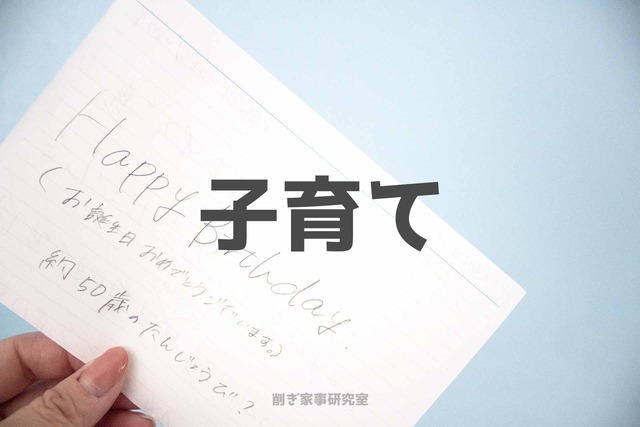 Happy Birthday.
(お誕生日おめでとうございます。)
約50歳のたんじょうび?
子育て
削ぎ家事研究室